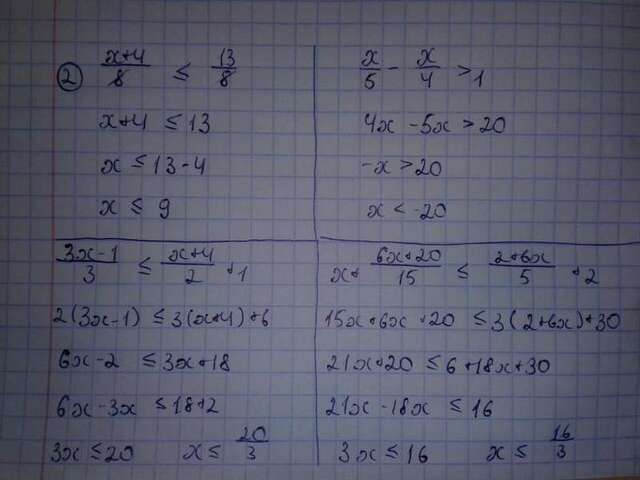 ② (x+4)/8 ≤ 13/8
x+4 ≤ 13
x ≤ 13-4
x ≤ 9
x/5 - x/4 > 1
4x - 5x > 20
-x > 20
x < -20
(3x-1)/3 ≤ (x+4)/2 + 1
2(3x-1) ≤ 3(x+4)+6
6x-2 ≤ 3x+18
6x-3x ≤ 18+2
3x ≤ 20 x ≤ 20/3
x+ (6x+20)/15 ≤ (2+6x)/5 + 2
15x+6x+20 ≤ 3(2+6x)+30
21x+20 ≤ 6+18x+30
21x-18x ≤ 16
3x ≤ 16 x ≤ 16/3